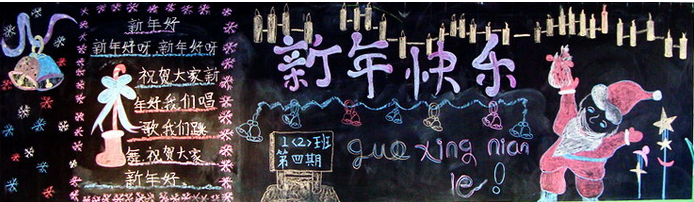 新年好
新年好呀,新年好呀
祝贺大家新
年好我们唱
歌我们跳
舞.祝贺大家
新年好
新年快乐
1(2)班
第四期
guo xing nian
le!